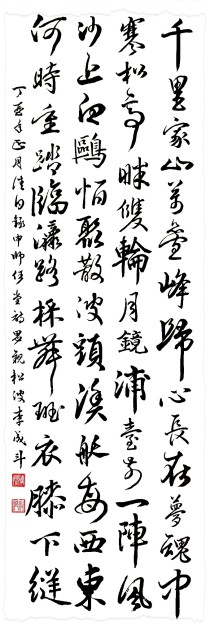 千里家山萬疊峰歸心長在夢魂中
寒松亭畔雙輪月鏡浦臺前一陣風
沙上白鷗恒聚散波頭漁艇每西東
何時重踏臨瀛路採舞斑衣膝下縫
丁酉年正月佳日錄申師任堂詩思親松波李成斗